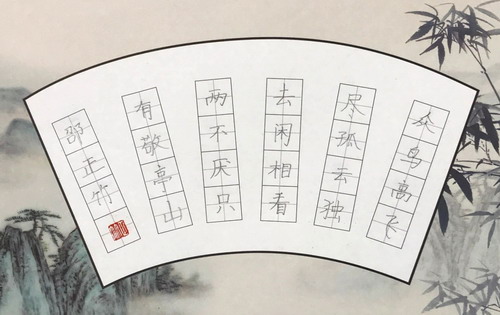 众鸟高飞
尽孤云独
去闲相看
两不厌只
有敬亭山
邵正竹